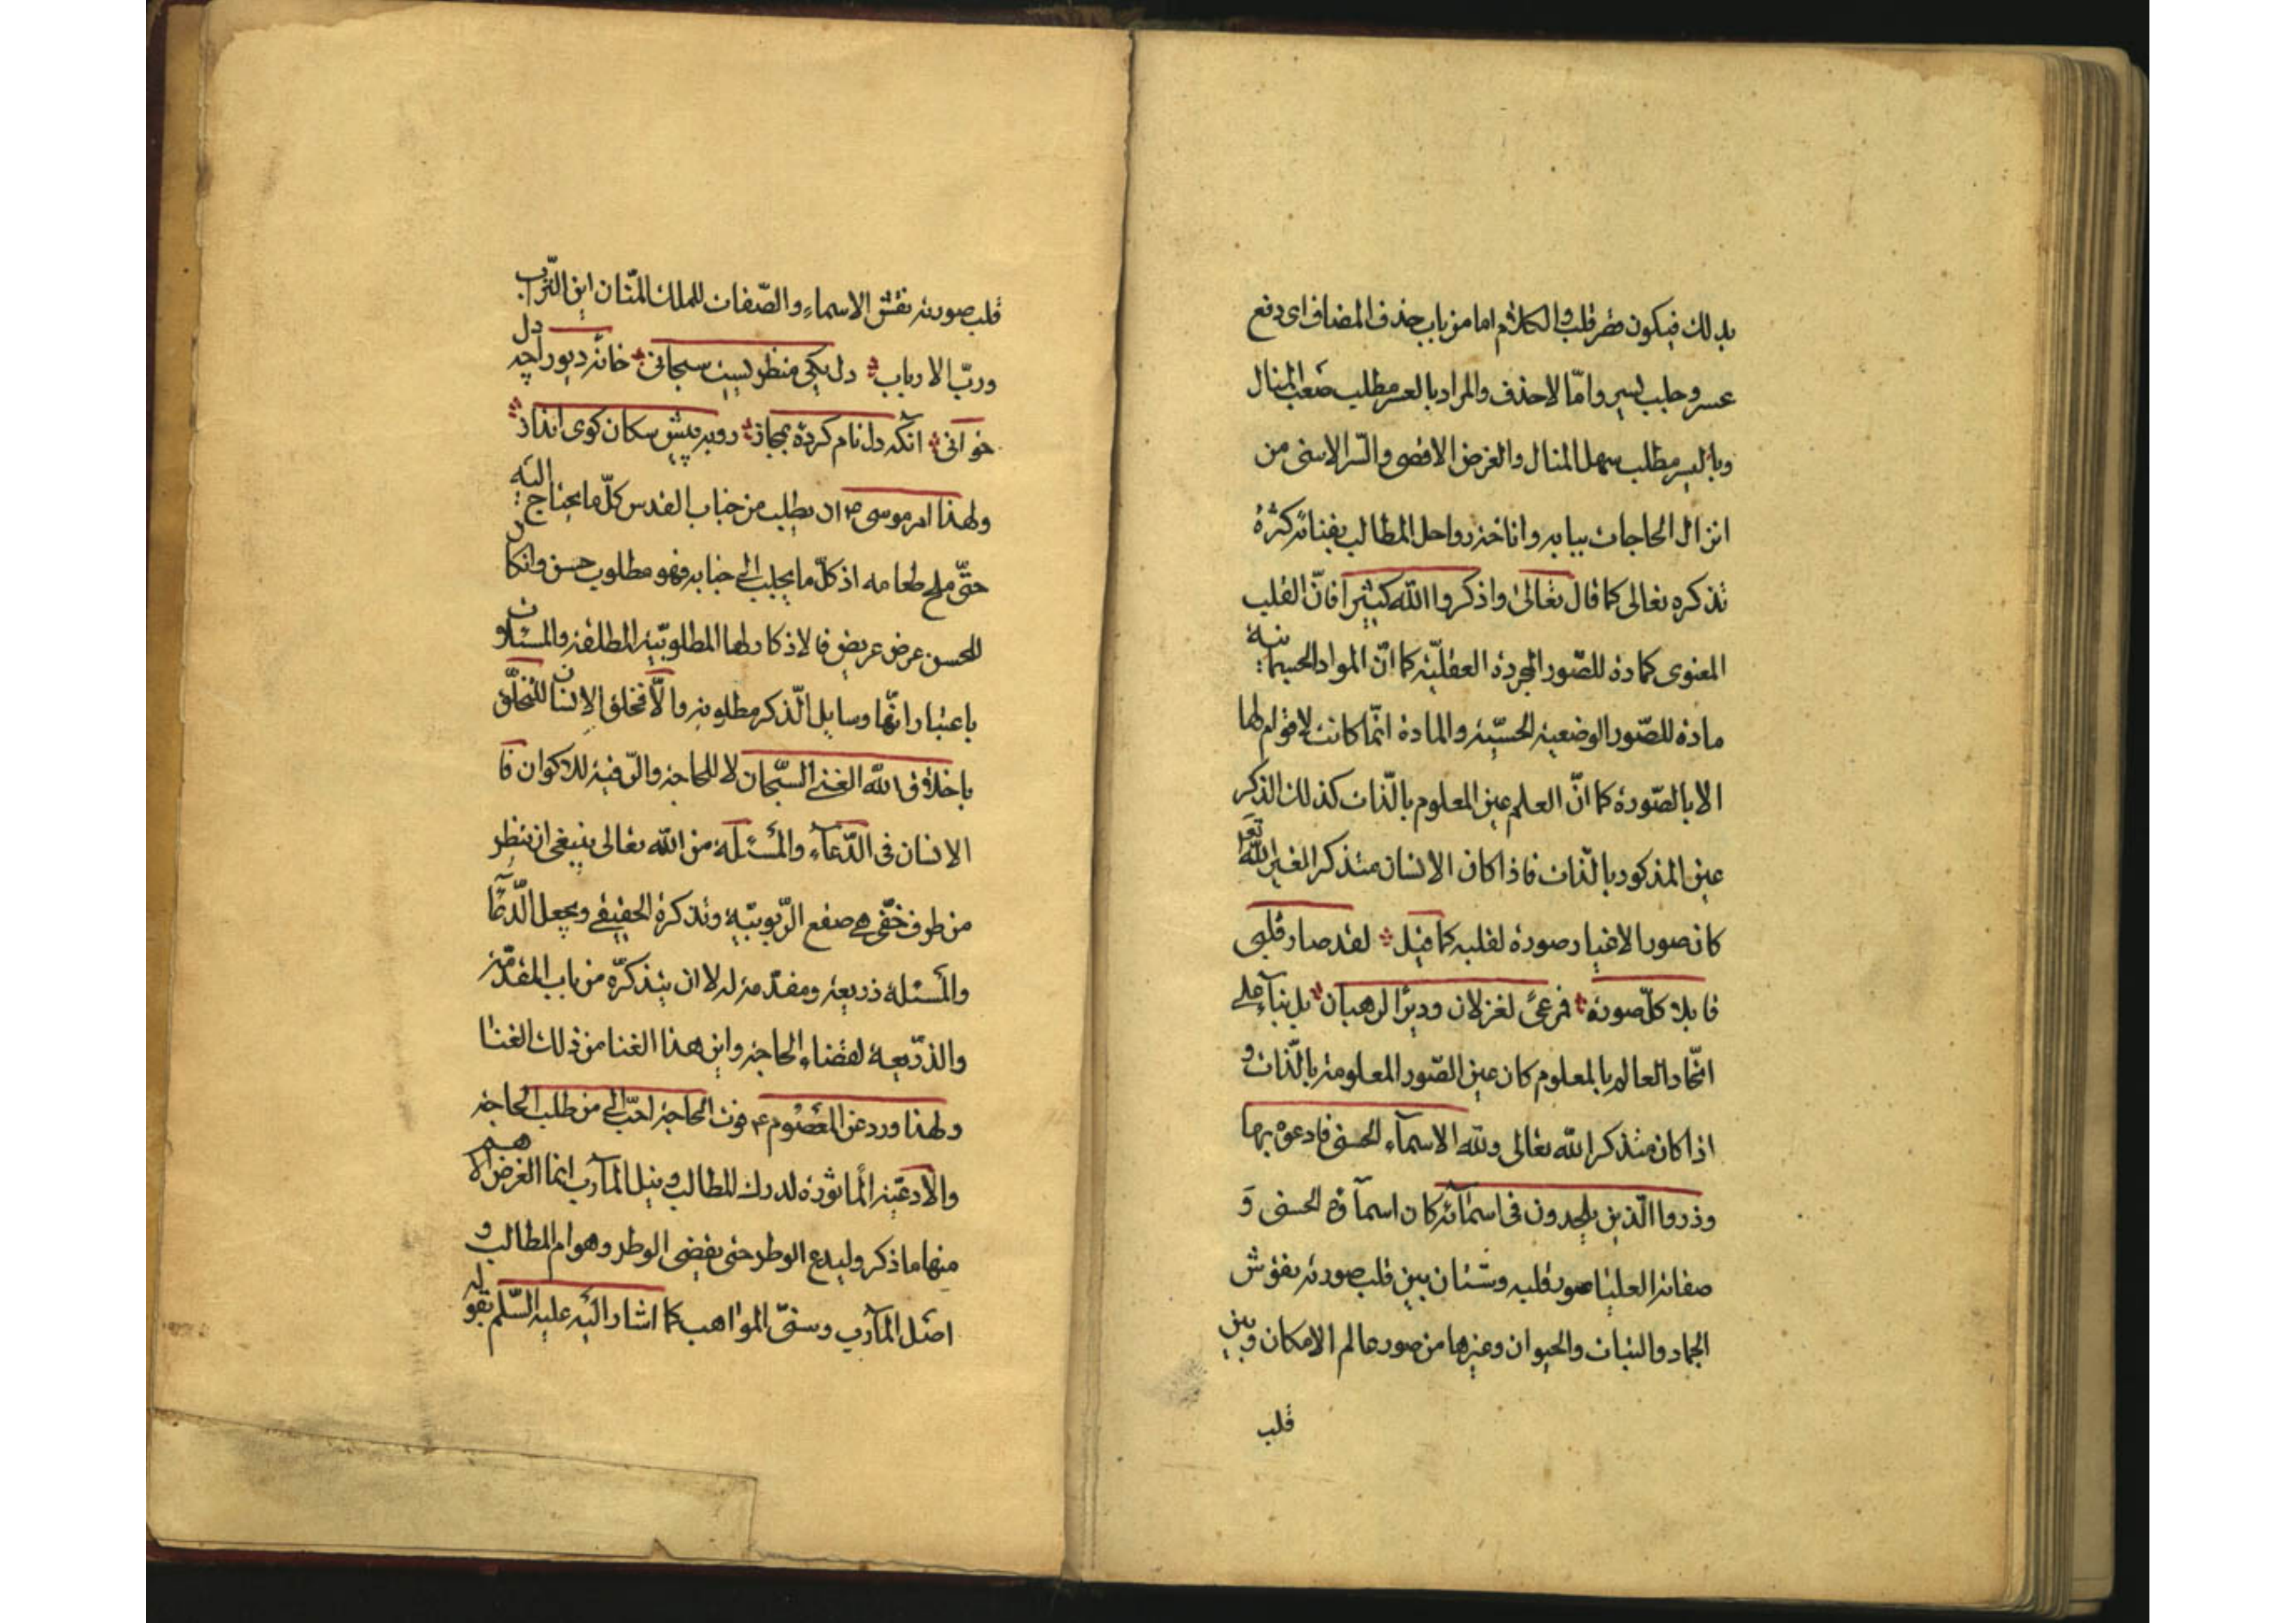 بذلك فيكون مضر قلب والكلام اما من باب حذف المضاف اى دفع
عسر وجلب يسير وامّا لا حذف والمراد بالعسر مطلب صَعب المنال
وباليسر مطلب سهل المنال والغرض الاقصى والسّر الاسنى من
انزال الحاجات ببابه واناخة رواحل المطالب بفنائه كثرة
تذكره تعالى كما قال تعالىٰ واذكروا الله كثيراً فانّ القلب
المعنوى كمادة للصّور المجردة العقليّة كما انّ المواد الجسمانية
مادة للصّور الوضعية الحسّية والمادة انّما كانت لا قوام لها
الا بالصّورة كما انّ العلم عين المعلوم بالذّات كذلك الذكر
عين المذكور بالذّات فاذا كان الانسان متذكرا لغير الله تع
كان صور الاغيار صورة لقلبه كما قيل لقد صار قلبى
قابلا كلّ صورة فمرعىً لغزلان وديرًا لرهبان بل بناءً على
اتّحاد العالم بالمعلوم كان عين الصّور المعلومة بالذّات و
اذا كان متذكرا لله تعالى ولله الاسمآء الحسنى فادعوه بها
وذروا الذين يلحدون فى اسمآئه كان اسمآؤه الحسنى وَ
صفاته العليا صور قلبه وشتان بين قلب صورته نقوش
الجماد والنبات والحيوان وغيرها من صور عالم الامكان وبين
قلب
قلب صورته نقش الاسماء والصّفات للملك المنّان اين التّراب
وربّ الارباب دل يكى منظريست سبحانى خانهٔ ديو را چه دل
خوانى آنكه دل نام كردهٔ بمجاز رو به پيش سكان كوى انداز
ولهذا امر موسى ع ان يطلب من جناب القدس كلّ ما يحتاج اليه
حتّى ملح طعامه اذ كلّ ما يجلب الى جنابه فهو مطلوب حسن وان كان
للحسن عرض عريض فالاذكار لها المطلوبيّة المطلقة والمسئلة و
باعتبار انّها وسايل الذّكر مطلوبة والّا فخلق الانسان للتخلّق
باخلاق الله الغنى السّبحان لا للحاجة والرّقية للاكوان فا
الانسان فى الدّعآء والمسْئلة من الله تعالى ينبغى ان ينظر
من طرف خفّى هى صقع الرّبوبيّة وتذكرة الحقيقى ويجعل الدّعآء
والمسئلة ذريعة ومقدّمة له لا ان يتذكّره من باب المقدّمة
والذّريعة لقضاء الحاجة واين هذا الغنا من ذلك الغنا
ولهذا ورد عن المعصُوم ع فوت الحاجة احبّ الىّ من طلب الحاجة
والادعية المأثورة لدرك المطالب ونيل المآرب انما الغرض الاهم
منها ما ذكر وليدع الوطر حتى يقضى الوطر وهو ام المطالب و
اصَل المآرب وسنىّ المواهب كما اشار اليه عليه السّلم بقوله